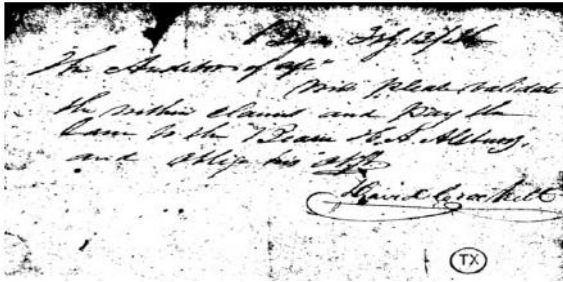 The Auditor of
will please validate
the within claim and pay the
Same to the Bearer H. A. Alsbury,
and oblige his
David Crockett
TX